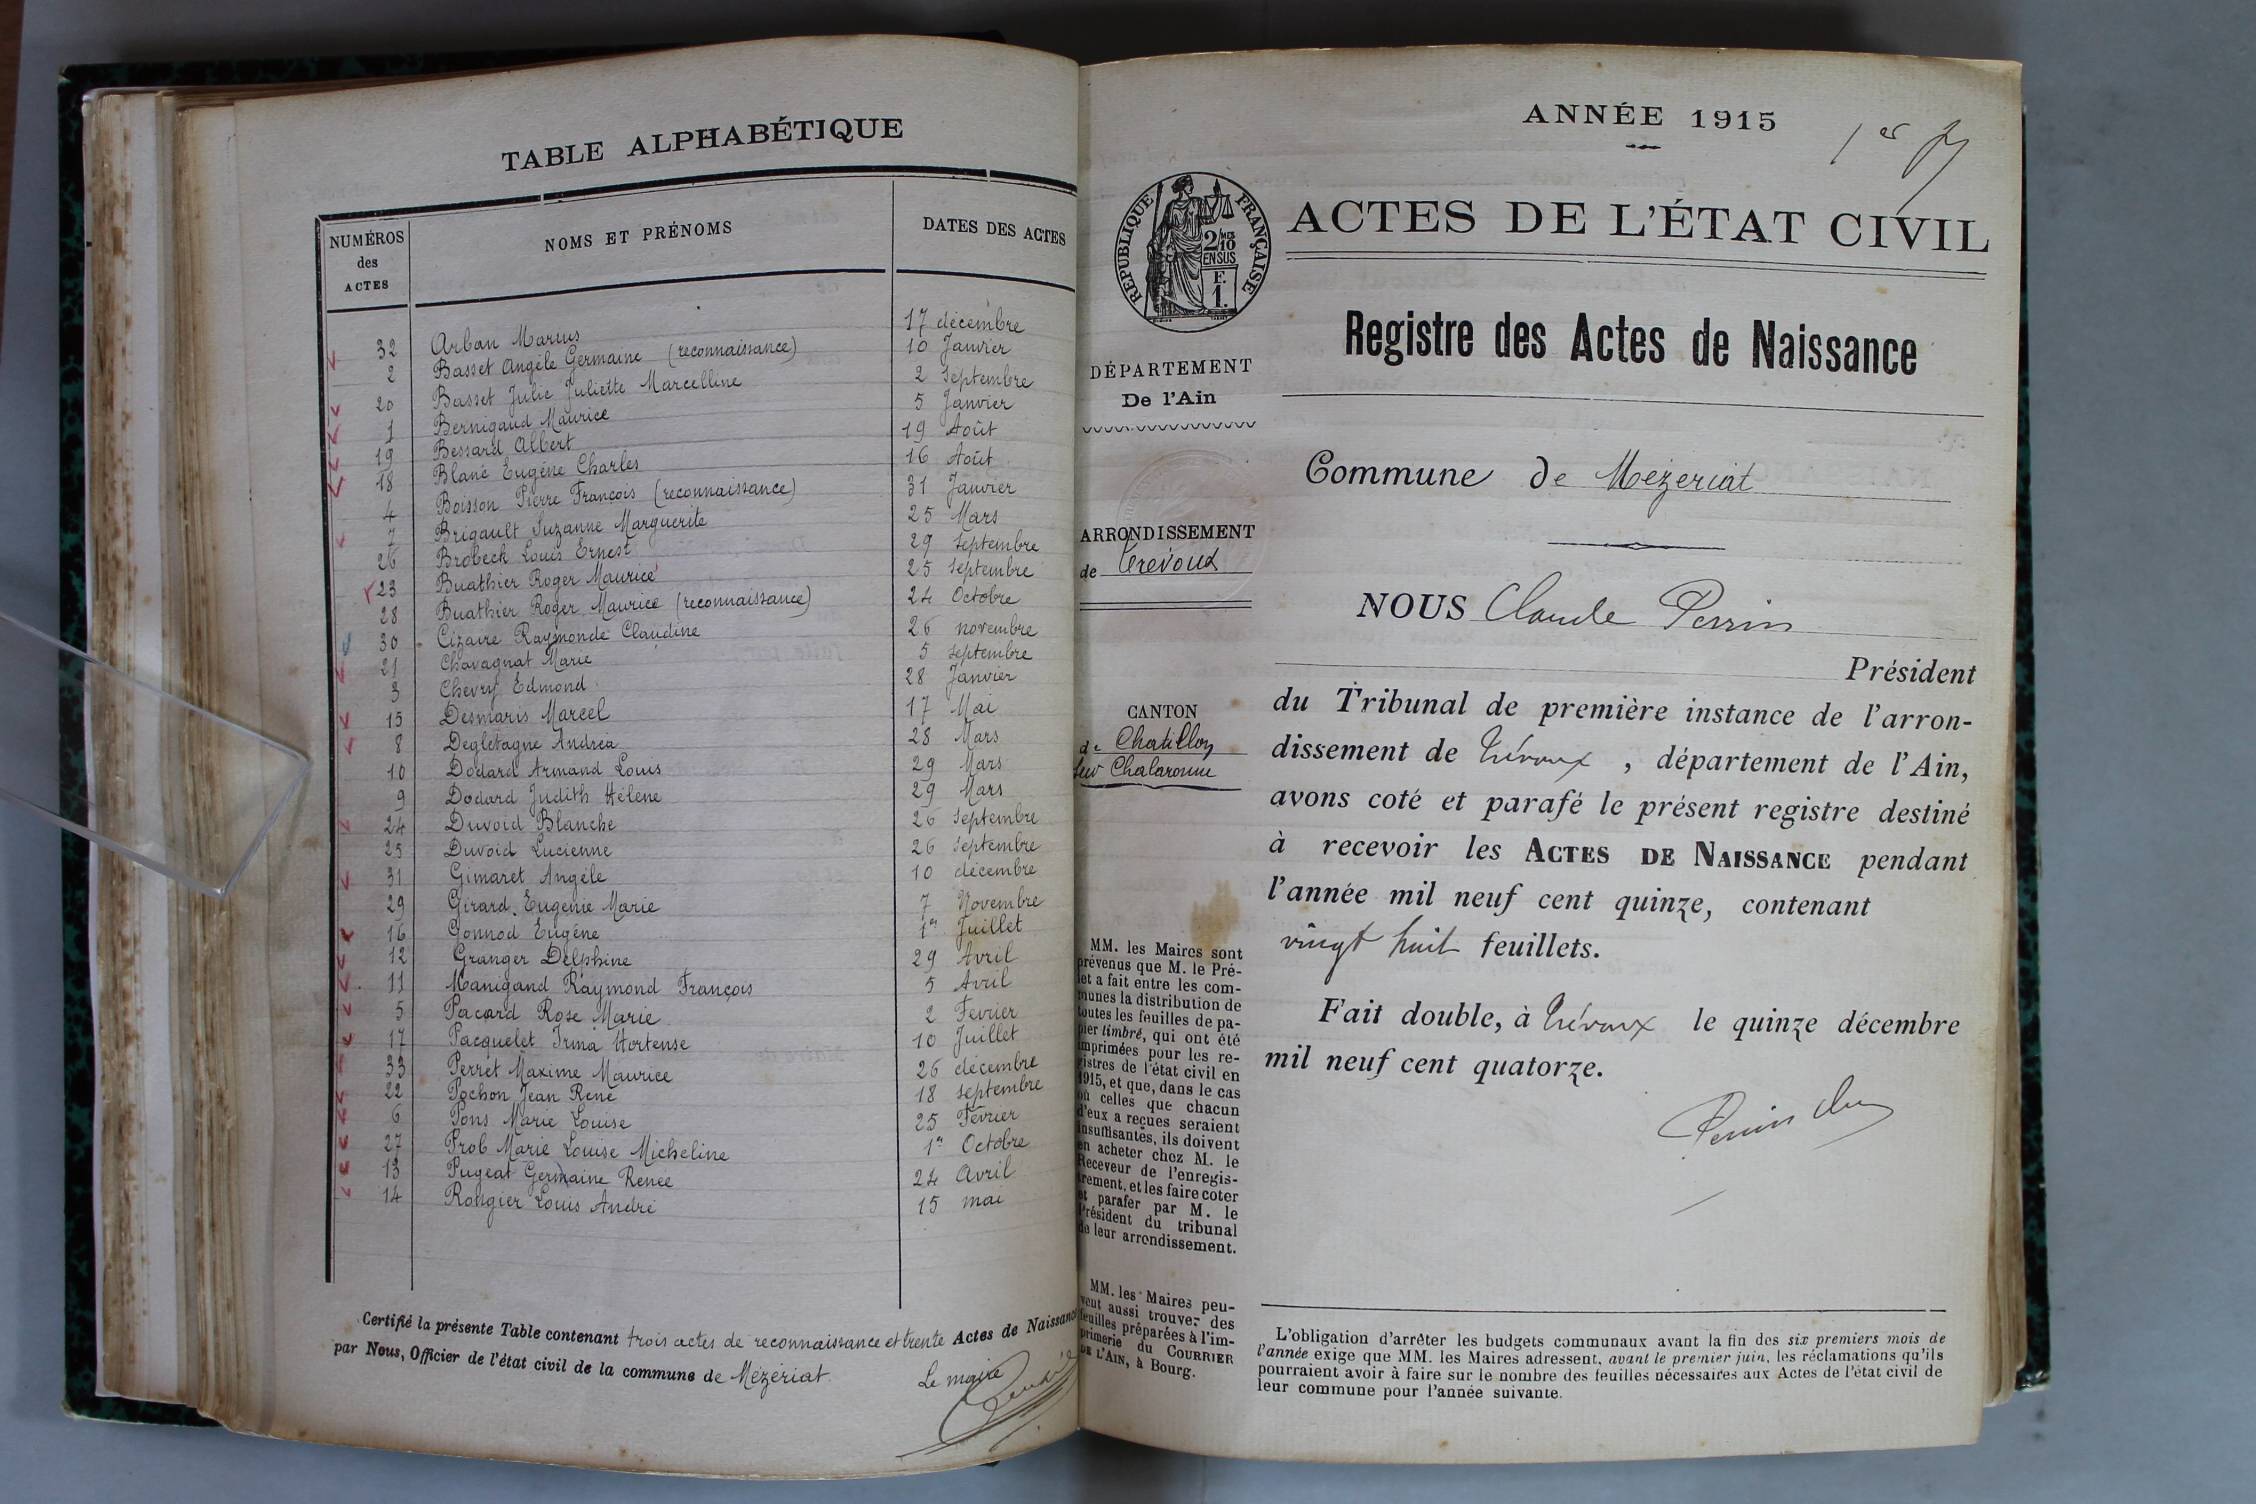 TABLE ALPHABÉTIQUE
NUMÉROS des ACTES
NOMS ET PRÉNOMS
DATES DES ACTES
32 Arban Marius 17 décembre
2 Basset Angèle Germaine (reconnaissance) 10 Janvier
20 Basset Julie Juliette Marcelline 2 septembre
1 Bernigaud Maurice 5 Janvier
19 Bessard Albert 19 Août
18 Blanc Eugène Charles 16 Août
4 Boisson Pierre François (reconnaissance) 31 Janvier
7 Brigault Suzanne Marguerite 25 Mars
26 Brobeck Louis Ernest 29 septembre
23 Buathier Roger Maurice 25 septembre
28 Buathier Roger Maurice (reconnaissance) 24 Octobre
30 Cizaire Raymonde Claudine 26 novembre
21 Chavagnat Marie 5 septembre
3 Chevry Edmond 28 Janvier
15 Desmaris Marcel 17 Mai
8 Degletagne Andréa 28 Mars
10 Dodard Armand Louis 29 Mars
9 Dodard Judith Hélène 29 Mars
24 Duvoid Blanche 26 septembre
25 Duvoid Lucienne 26 septembre
31 Gimaret Angèle 10 décembre
29 Girard Eugénie Marie 7 Novembre
16 Gonnod Eugène 1er Juillet
12 Granger Delphine 29 Avril
11 Manigand Raymond François 5 Avril
5 Pacard Rose Marie 2 Fevrier
17 Pacquelet Irma Hortense 10 Juillet
33 Perret Maxime Maurice 26 décembre
22 Pochon Jean René 18 septembre
6 Pons Marie Louise 25 Février
27 Prob Marie Louise Micheline 1er Octobre
13 Pugeat Germaine Renée 24 Avril
14 Rougier Louis André 15 mai
Certifié la présente Table contenant trois actes de reconnaissance et trente Actes de Naissance
par Nous, Officier de l'état civil de la commune de Mézériat.
Le maire
ANNÉE 1915
1er
RÉPUBLIQUE FRANÇAISE
2/10 MES
EN SUS
F.
1.
ACTES DE L'ÉTAT CIVIL
Registre des Actes de Naissance
DÉPARTEMENT
De l'Ain
Commune de Mézeriat
ARRONDISSEMENT
de Trévoux
NOUS Claude Perrin
Président
du Tribunal de première instance de l'arron-
dissement de Trévoux, département de l'Ain,
avons coté et parafé le présent registre destiné
à recevoir les ACTES DE NAISSANCE pendant
l'année mil neuf cent quinze, contenant
vingt huit feuillets.
Fait double, à Trévoux le quinze décembre
mil neuf cent quatorze.
CANTON
de Chatillon
sur Chalaronne
MM. les Maires sont
prévenus que M. le Pré-
fet a fait entre les com-
munes la distribution de
toutes les feuilles de pa-
pier timbré, qui ont été
imprimées pour les re-
gistres de l'état civil en
1915, et que, dans le cas
où celles que chacun
d'eux a reçues seraient
insuffisantes, ils doivent
en acheter chez M. le
Receveur de l'enregis-
trement, et les faire coter
et parafer par M. le
Président du tribunal
de leur arrondissement.
MM. les Maires peu-
vent aussi trouver des
feuilles préparées à l'im-
primerie du COURRIER
DE L'AIN, à Bourg.
L'obligation d'arrêter les budgets communaux avant la fin des six premiers mois de
l'année exige que MM. les Maires adressent, avant le premier juin, les réclamations qu'ils
pourraient avoir à faire sur le nombre des feuilles nécessaires aux Actes de l'état civil de
leur commune pour l'année suivante.